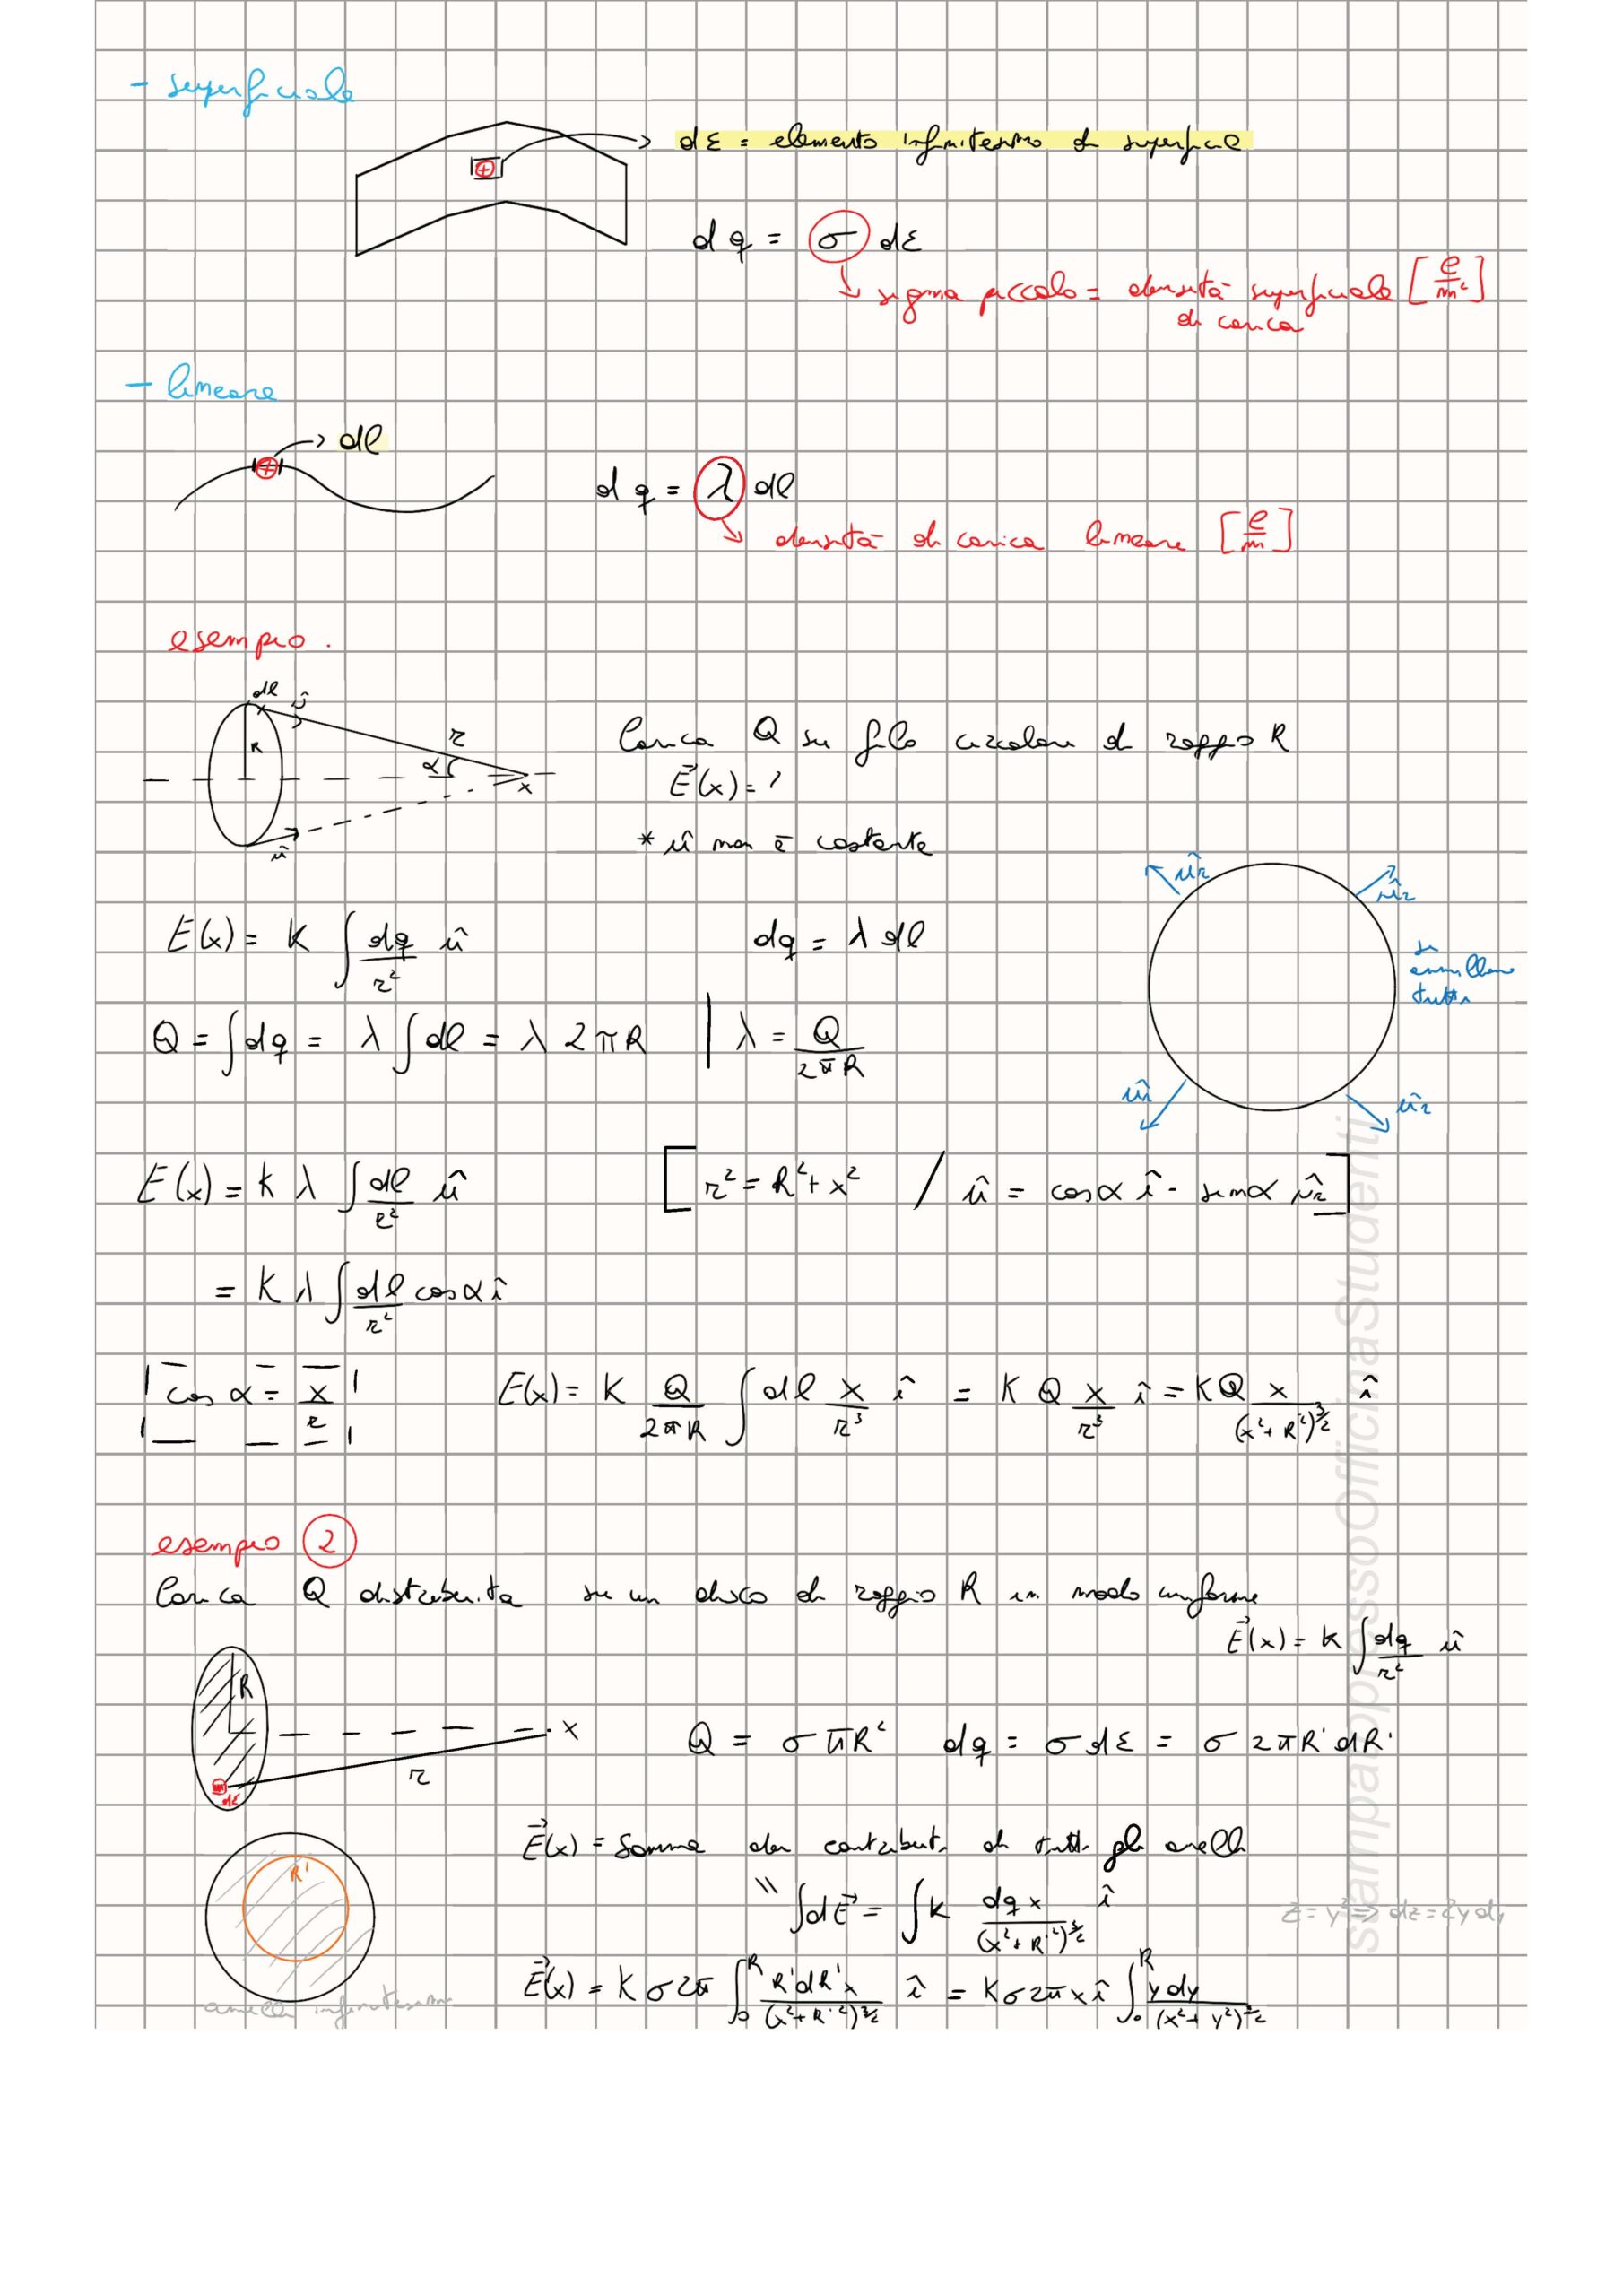 - superficiale
dΣ = elemento infinitesimo di superficie
dq = σ dΣ
↳ sigma piccolo = densità superficiale [C/m²]
di carica
- lineare
→ dl
dq = λ dl
↳ densità di carica lineare [C/m]
esempio.
dl û
R r α x
û
Carica Q su filo circolare di raggio R
E⃗(x) = ?
* û non è costante
E(x) = K ∫ dq/r² û dq = λ dl
ûr ûr
si annullano tutti
ûr ûr
Q = ∫dq = λ ∫dl = λ 2πR | λ = Q/2πR
E(x) = K λ ∫ dl/r² û [r² = R² + x² / û = cosα î - senα ûr]
= K λ ∫ dl/r² cosα î
cos α = x/r E(x) = K Q/2πR ∫ dl x/r³ î = K Q x/r³ î = KQ x/(x²+R²)^3/2 î
esempio 2
Carica Q distribuita su un disco di raggio R in modo uniforme
E⃗(x) = K ∫ dq/r² û
R x r dΣ
Q = σπR² dq = σ dΣ = σ 2πR' dR'
E⃗(x) = somma dei contributi di tutti gli anelli
R'
" ∫dE⃗ = ∫K dq x/(x²+R'²)^3/2 î
z = y² => dz = 2y dy
E⃗(x) = K σ 2π ∫₀ᴿ R'dR'x/(x²+R'²)^3/2 î = Kσ2πx î ∫₀ᴿ y dy/(x²+y²)^3/2
anelli infinitesimi
stampatoppressoOfficinaStudenti